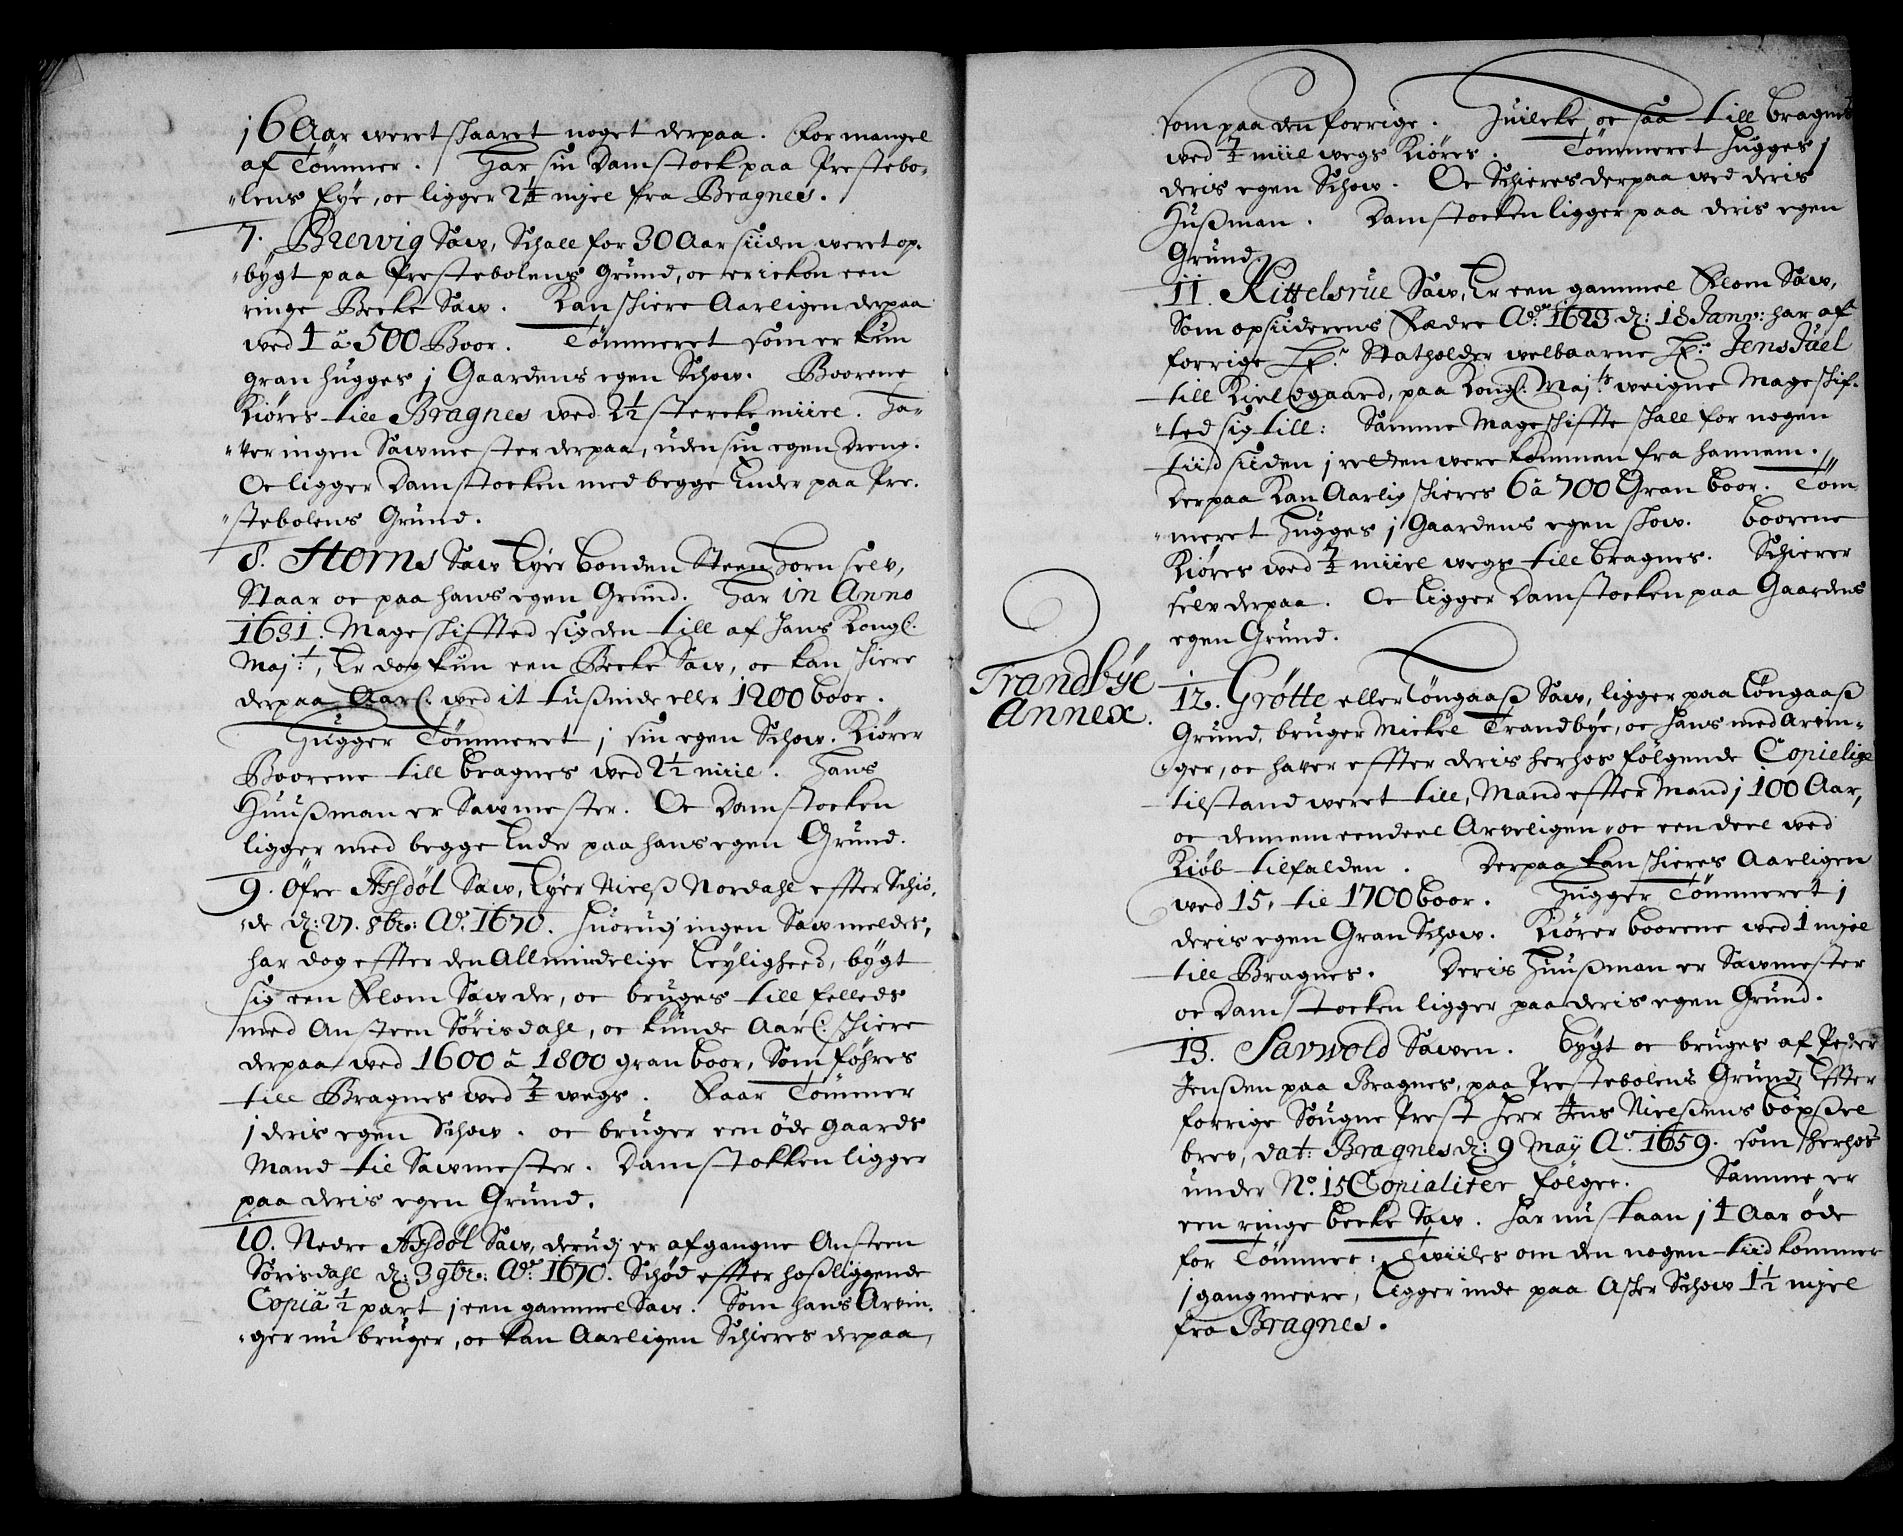 j 6 Aar weret skaaret noget derpaa. For mangel
af Tømmer. Har sin Damstock paa Prestebo-
lens Eye, oc ligger 2¼ mjel fra Bragnes.
7. Brewig Saw, Schall for 30 Aar siiden weret op-
bygt paa Prestebolens Grund, oc er ickon een
ringe Becke Saw. Kan schiere Aarligen derpaa
wed 4 à 500 Boor. Tømmeret som er kun
gran hugges j Gaardens egen Schow. Boorene
Kiøres till Bragnes wed 2½ stercke miile. Ha-
wer ingen Sawmester derpaa, uden sin egen Dreng.
Oc ligger Damstocken med begge Ender paa Pre-
stebolens Grund.
8. Horns Saw Eyer bonden Steen Horn selv,
Staar oc paa hans egen Grund. Har in Anno
1631. Mageskifted sig den till af Hans Kongl:
Maj:t, Er dog kun een Becke Saw, oc kan schiere
derpaa Aarl: wed it tusinde eller 1200 boor.
Hugger Tømmeret j sin egen Schow. Kiører
Boorene till bragnes wed 2½ miil. Hans
Huusman er Sawmester. Oc Damstocken
ligger med begge Ender paa hans egen Grund.
9. Øfre Assdøl Saw, Eyer Nielß Nordahl effter Schiø-
de d: 27. 8br: Ao. 1670. Huorudj ingen Saw meldes,
har dog effter den Allmindelige Leylighed, bygt
sig een Flom Saw der, oc bruges till felleds
med Ansteen Sørisdahl, oc kunde Aarl: schiere
derpaa wed 1600 à 1800 gran boor, Som føhres
till Bragnes wed 7/4 wegs. Faar Tømmer
j deris egen Schow. oc bruger een øde gaards
Mand til Sawmester. Damstokken ligger
paa deris egen Grund.
10. Nedre Assdøl Saw, derudj er afgangne Ansteen
Sørisdahl d: 3 9br: Ao. 1670. Schød effter hosliggende
Copia ½ part j een gammel Saw. Som hans Arvin-
ger nu bruger, oc kan Aarligen Schieres derpaa,
som paa den forrige. Huilcke oc saa till bragnes
wed 7/4 miil wegs Kiøres. Tømmeret hugges j
deris egen Schow. Oc Schieres derpaa wed deris
Hußman. Damstocken ligger paa deris egen
Grund.
11. Kittelsrue Saw, Er een gammel Flom Saw,
Som opsiiderens Fædre Ao. 1623 d: 18 Janv: har af
forrige Hr. Statholder welbaarne Hr. Jens Juel
till Kieldgaard, paa Kongl. Maj:ts weigne Mageskif-
ted sig till: Samme Mageskiffte skall for nogen
tiid siiden j ilden were kommen fra hannem.
Derpaa Kan Aarlig schieres 6 à 700 Gran boor. Töm-
meret hugges j Gaardens egen skow. boorene
Kiøres wed 7/4 miiel wegs till bragnes. Schierer
selv derpaa. Oc ligger Damstocken paa Gaardens
egen Grund.
Trandbye
Annex.
12. Grøtte eller Tøngaaß Saw, ligger paa Tøngaaß
Grund, bruger Mickel Trandbye, oc hans med arvin-
ger, oc hawer effter deris herhos følgende Copielige
tilstand weret till, Mand effter Mand j 100 Aar,
oc dennem eendeel Arveligen oc een deel wed
Kiøb tilfalden. Derpaa kan schieres Aarligen
wed 15, til 1700 boor. Hugger Tømmeret j
deris egen Gran Schow. Kiører boorene wed 1 mjel
till Bragnes. Deris Huußman er Sawmester
oc Damstocken ligger paa deris egen Grund.
13. Sarwold Sawen. bygt oc bruges af Peder
Jenßen paa Bragnes, paa Prestebolens Grund, Effter
forrige Sougne Prest Herr Jens Nielßens böxßel
brev, dat: Bragnes d: 9 May Ao. 1659. som herhos
under No. 15 Copialiter følger. Samme er
een ringe becke Saw. har nu staan j 4 Aar øde
for Tømmer: Twiiles om den nogen tiid kommer
j gang meere, Ligger inde paa Asker Schow 1½ mjel
fra Bragnes.